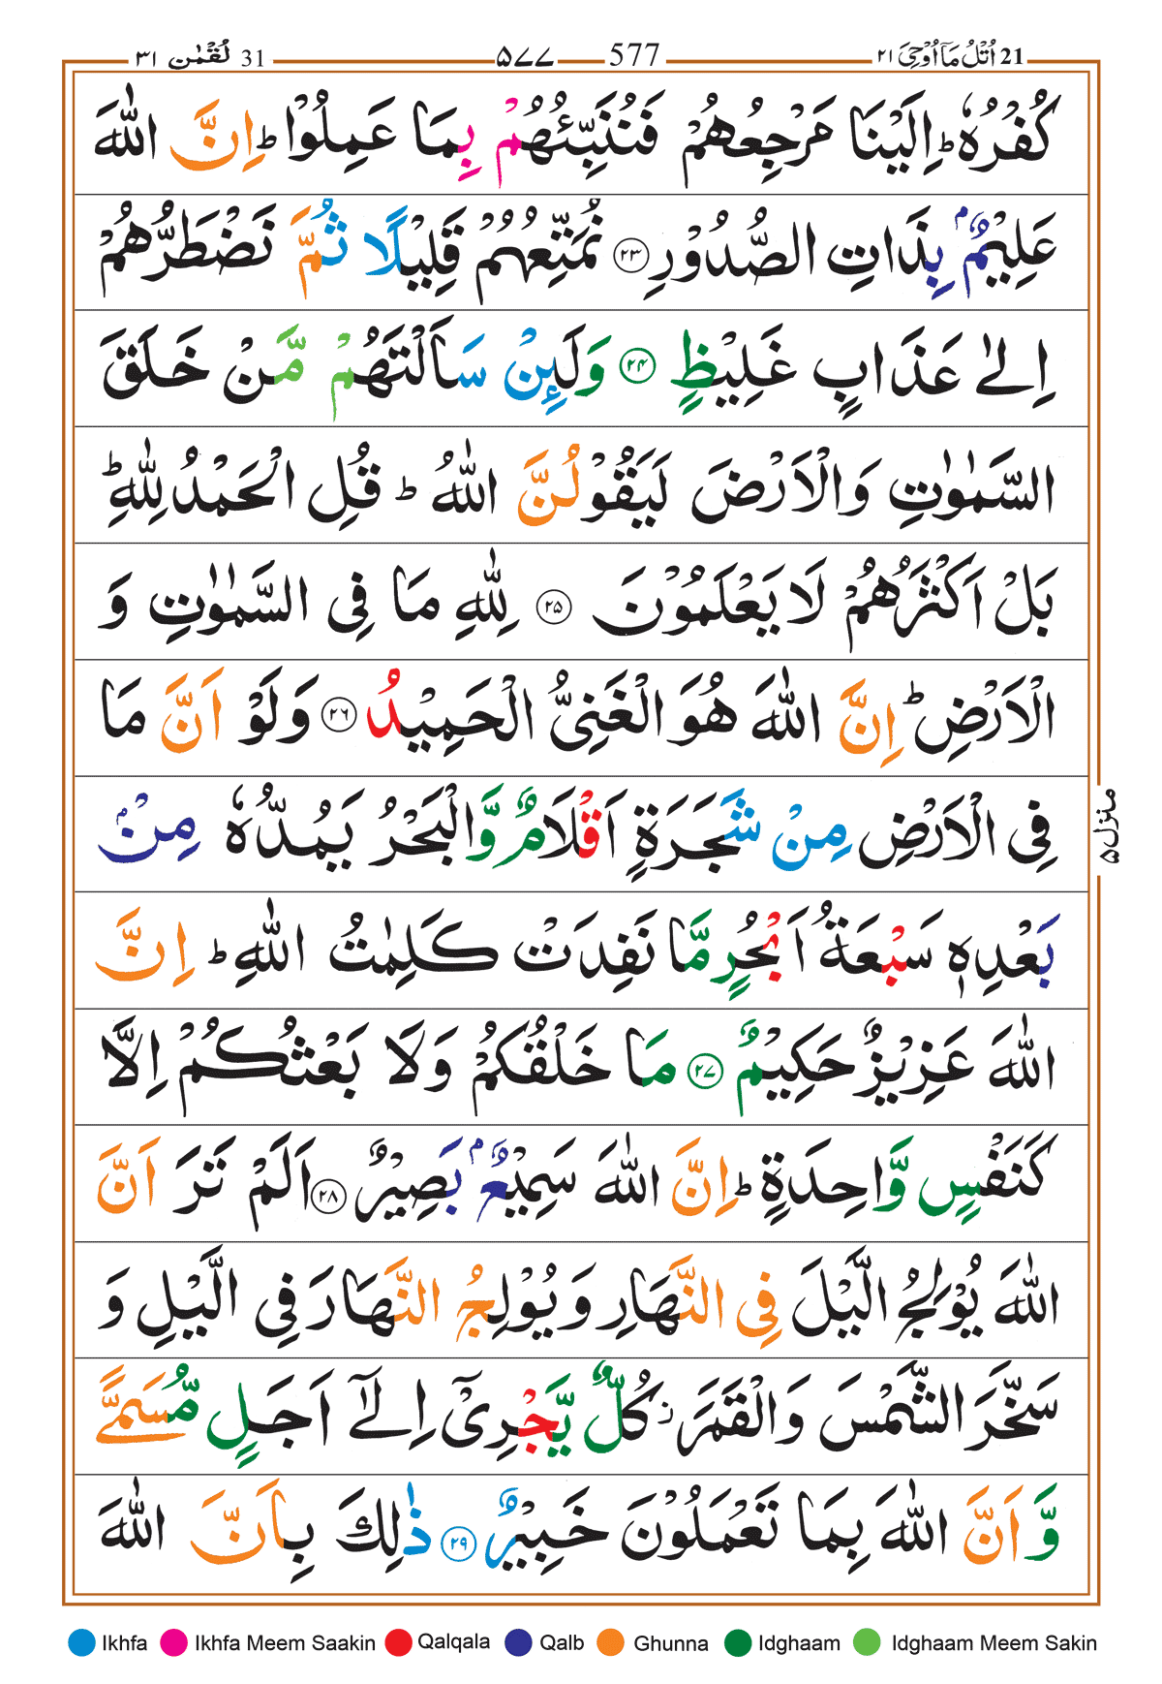 لُقْمٰن ٣١ 31 ۵۷۷ 577 اُتْلُ مَاۤ اُوْحِیَ ٢١ 21
كُفْرُهٗ ؕ اِلَیْنَا مَرْجِعُهُمْ فَنُنَبِّئُهُمْ بِمَا عَمِلُوْا ؕ اِنَّ اللّٰهَ
عَلِیْمٌۢ بِذَاتِ الصُّدُوْرِ ﴿۲۳﴾ نُمَتِّعُهُمْ قَلِیْلًا ثُمَّ نَضْطَرُّهُمْ
اِلٰى عَذَابٍ غَلِیْظٍ ﴿۲۴﴾ وَلَىِٕنْ سَاَلْتَهُمْ مَّنْ خَلَقَ
السَّمٰوٰتِ وَالْاَرْضَ لَیَقُوْلُنَّ اللّٰهُ ؕ قُلِ الْحَمْدُ لِلّٰهِ ؕ
بَلْ اَكْثَرُهُمْ لَا یَعْلَمُوْنَ ﴿۲۵﴾ لِلّٰهِ مَا فِی السَّمٰوٰتِ وَ
الْاَرْضِ ؕ اِنَّ اللّٰهَ هُوَ الْغَنِیُّ الْحَمِیْدُ ﴿۲۶﴾ وَلَوْ اَنَّ مَا
فِی الْاَرْضِ مِنْ شَجَرَةٍ اَقْلَامٌ وَّالْبَحْرُ یَمُدُّهٗ مِنْۢ
بَعْدِهٖ سَبْعَةُ اَبْحُرٍ مَّا نَفِدَتْ كَلِمٰتُ اللّٰهِ ؕ اِنَّ
اللّٰهَ عَزِیْزٌ حَكِیْمٌ ﴿۲۷﴾ مَا خَلْقُكُمْ وَلَا بَعْثُكُمْ اِلَّا
كَنَفْسٍ وَّاحِدَةٍ ؕ اِنَّ اللّٰهَ سَمِیْعٌۢ بَصِیْرٌ ﴿۲۸﴾ اَلَمْ تَرَ اَنَّ
اللّٰهَ یُوْلِجُ الَّیْلَ فِی النَّهَارِ وَیُوْلِجُ النَّهَارَ فِی الَّیْلِ وَ
سَخَّرَ الشَّمْسَ وَالْقَمَرَ ؗ كُلٌّ یَّجْرِیْۤ اِلٰۤى اَجَلٍ مُّسَمًّى
وَّاَنَّ اللّٰهَ بِمَا تَعْمَلُوْنَ خَبِیْرٌ ﴿۲۹﴾ ذٰلِكَ بِاَنَّ اللّٰهَ
منزل ۵
Ikhfa Ikhfa Meem Saakin Qalqala Qalb Ghunna Idghaam Idghaam Meem Sakin